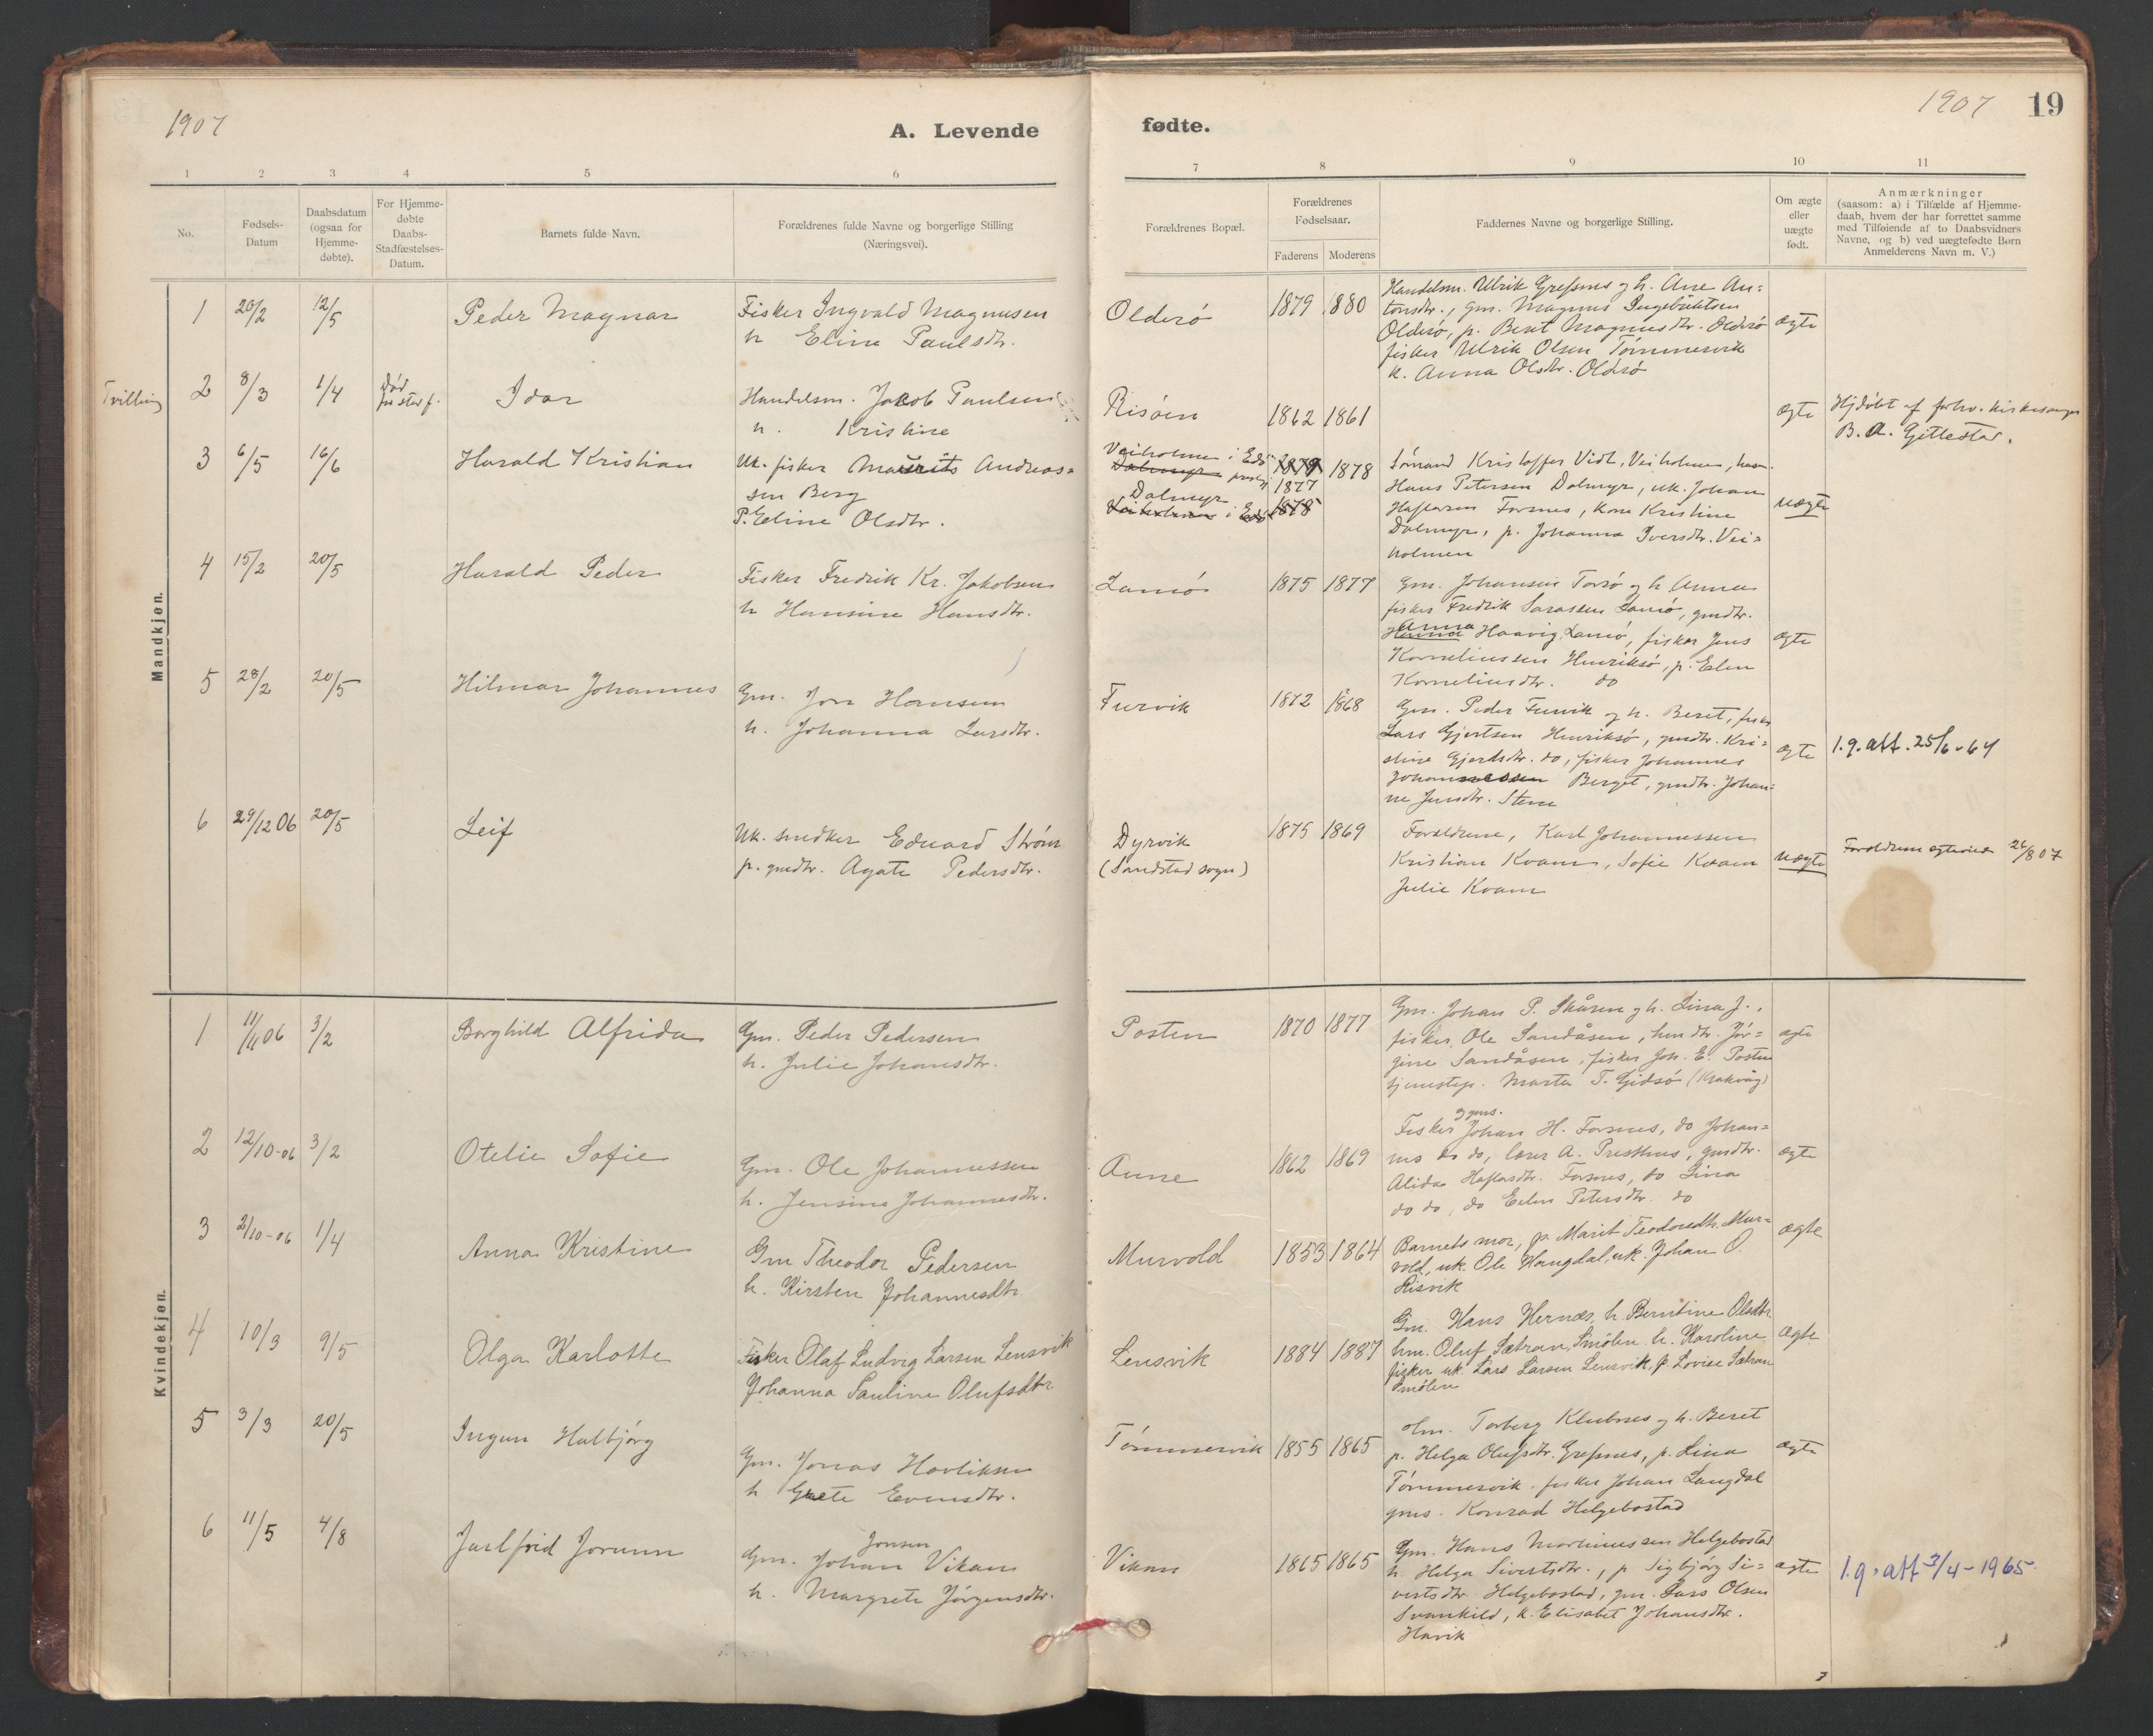 1907
A. Levende
fødte.
1907
19
1 2 3 4 5 6
7 8 9 10 11
No.
Fødsels-
Datum
Daabsdatum
(ogsaa for
Hjemme-
døbte).
For Hjemme-
døbte
Daabs-
Stadfæstelses-
Datum.
Barnets fulde Navn.
Forældrenes fulde Navne og borgerlige Stilling
(Næringsvei).
Forældrenes Bopæl.
Forældrenes
Fødselsaar.
Faderens
Moderens
Faddernes Navne og borgerlige Stilling.
Om ægte
eller
uægte
født.
Anmærkninger
(saasom: a) i Tilfælde af Hjemme-
daab, hvem der har forrettet samme
med Tilføiende af to Daabsvidners
Navne, og b) ved uægtefødte Børn
Anmelderens Navn m. V.)
Mandkjøn.
1 20/2 12/5 Peder Magnar
Fisker Ingvald Magnusen
h Eline Paulsdtr.
Olderø 1879 1880
Handelsm. Ulrik Grefsnes og h. Ane An=
tonsdtr., gm. Magnus Ingebriktsen
Olderø, p. Berit Magnusdtr. Olderø
fisker Ulrik Olsen Tømmervik
k. Anna Olsdtr. Olderø
ægte
Tvilling
2 8/3 1/4 Død før stadf. Idar
Handelsm. Jakob Paulsen
h. Kristine
Risøen 1862 1861
ægte
Hjdøbt af forhv. kirkesanger
B. A. Gjettestad.
3 6/5 16/6 Harald Kristian
Uk. fisker Maurits Andreas=
sen Berg
P. Eline Olsdtr.
Veiholmen i Edø
Dalmyr
Dalmyr
Veiholmen i Edø
1879 1878
1877
1878
Sømand Kristoffer Vidt, Veiholmen, husm.
Hans Petersen Dalmyr, uk. Johan
Haftorsen Forsnes, kone Kristine
Dalmyr, p. Johanna Iversdtr. Vei=
holmen
uægte
4 15/2 20/5 Harald Peder
Fisker Fredrik Kr. Jakobsen
h Hansine Hansdtr.
Lamø 1875 1877
Gm. Johansen Torsø og h. Anna
fisker Fredrik Larassen Lamø, gmdtr.
Anna
Hanna Haavig Lamø, fisker Jens
Korneliussen Henriksø, p. Elen
Korneliusdtr. do
ægte
5 28/2 20/5 Hilmar Johannes
Gm. Jon Hansen
h. Johanna Larsdtr.
Furvik 1872 1868
Gm. Peder Furvik og h. Beret, fisker
Lars Gjertsen Henriksø, gmdtr. Kri=
stine Gjertsdtr. do, fisker Johannes
Johannessen Berget, gmdtr. Johan=
ne Jensdtr. Stene
ægte
1.g. att. 25/6-64
6 29/12 06 20/5 Leif
Uk. snedker Edvard Strøm
p. gmdtr. Agate Pedersdtr.
Dyrvik
(Sandstad sogn)
1875 1869
Forældrene, Karl Johannessen
Kristian Kvam, Sofie Kvam
Julie Kvam
uægte
Forældrene ægteviede 26/8 07
Kvindekjøn.
1 11/11 06 3/2 Borghild Alfrida
Gm. Peder Pedersen
h. Julie Johansdtr.
Posten 1870 1877
Gm. Johan P. Skåren og h. Lina J.,
fisker Ole Sandåsen, husdtr. Jør=
gine Sandåsen, fisker Joh. E. Posten
tjenestep. Marta T. Gjdsø (Krakvåg)
ægte
2 12/10-06 3/2 Otelie Sofie
Gm. Ole Johannessen
h. Jensine Johannesdtr.
Aune 1862 1869
ggms.
Fisker Johan H. Forsnes, do Johan=
nes do do, lærer A. Presthus, gmdtr.
Alida Haftorsdtr. Forsnes, do Lina
do do, do Elen Petersdtr. do
ægte
3 2/10-06 1/4 Anna Kristine
Gm Theodor Pedersen
h. Kirsten Johannesdtr.
Murvold 1853 1864
Barnets mor, p. Marit Teodorsdtr. Mur=
vold, uk. Ole Haugdal, uk. Johan O.
Risvik
ægte
4 10/3 9/5 Olga Karlotte
Fisker Olaf Ludvig Larsen Lensvik
Johanna Pauline Olufsdtr
Lensvik 1884 1887
Gm. Hans Hernæs, h. Berntine Olsdtr.
hm. Oluf Sætran, Smølen h. Karoline
fisker uk. Lars Larsen Lensvik, p. Lovise Sætran
Smølen
ægte
5 3/3 20/5 Ingun Halbjørg
Gm. Jonas Havliksen
h Grete Evensdtr.
Tømmervik 1855 1865
olm. Torberg Klubnes og h. Beret
p. Helga Olufsdtr. Grefsnes, p. Lina
Tømmervik, fisker Johan Langdal
gms. Konrad Helgebostad
ægte
6 11/5 4/8 Jarlfrid Jorunn
Jonsen
Gm. Johan Vikan
h. Margrete Jørgensdtr.
Vikan 1865 1865
Gm. Hans Martinussen Helgebostad
h. Helga Sivertsdtr., p. Sigbjørg Si=
vertsdtr. Helgebostad, gm. Lars Olsen
Svankild, k. Elisabet Johansdtr.
Havik
ægte
1.g. att 3/4-1965.